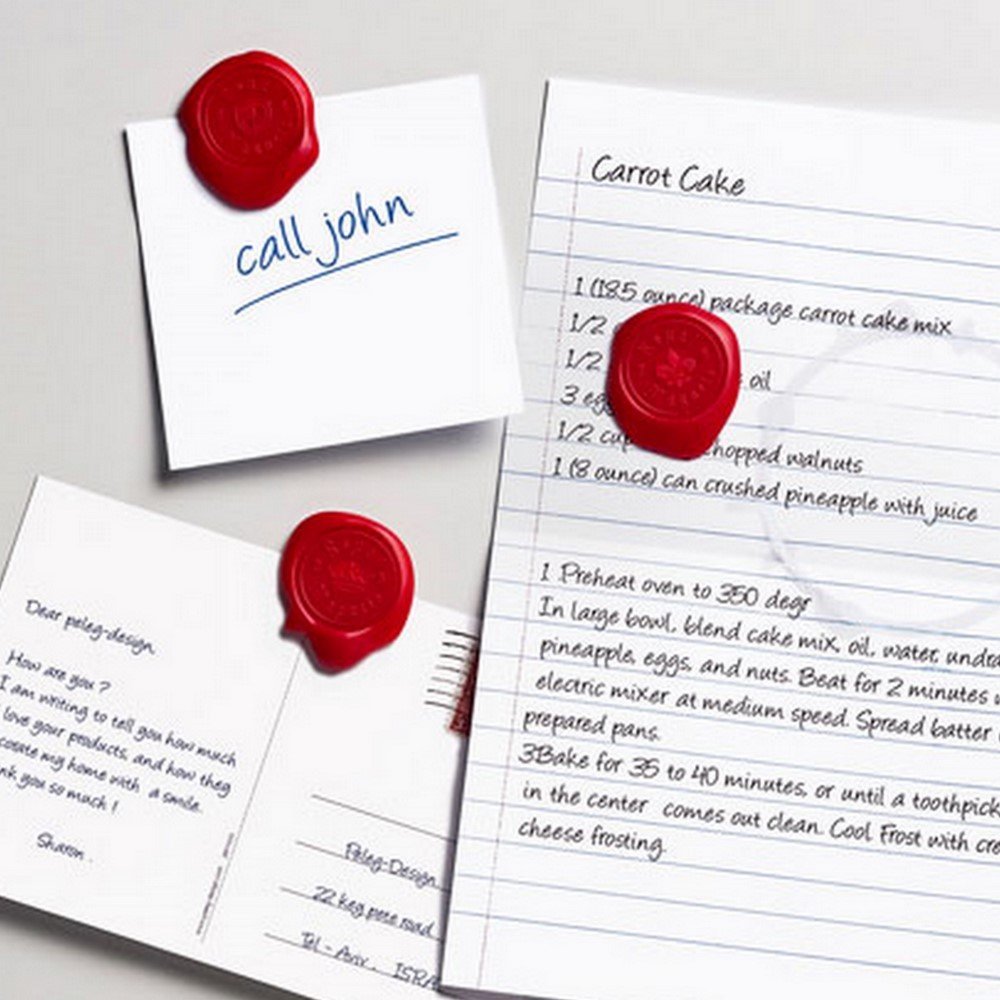 call john
Carrot Cake
1 (18.5 ounce) package carrot cake mix
1/2
1/2 oil
3
1/2 chopped walnuts
1 (8 ounce) can crushed pineapple with juice
1 Preheat oven to 350 degr
In large bowl, blend cake mix, oil, water, undra
pineapple, eggs, and nuts. Beat for 2 minutes
electric mixer at medium speed. Spread batter
prepared pans.
3Bake for 35 to 40 minutes, or until a toothpick
in the center comes out clean. Cool. Frost with cre
cheese frosting.
Dear peleg-design,
How are you ?
I am writing to tell you how much
love your products, and how they
corate my home with a smile.
nk you so much !
Sharon .
Peleg-Design
22 keg pete road
Tel - Aviv , ISRA